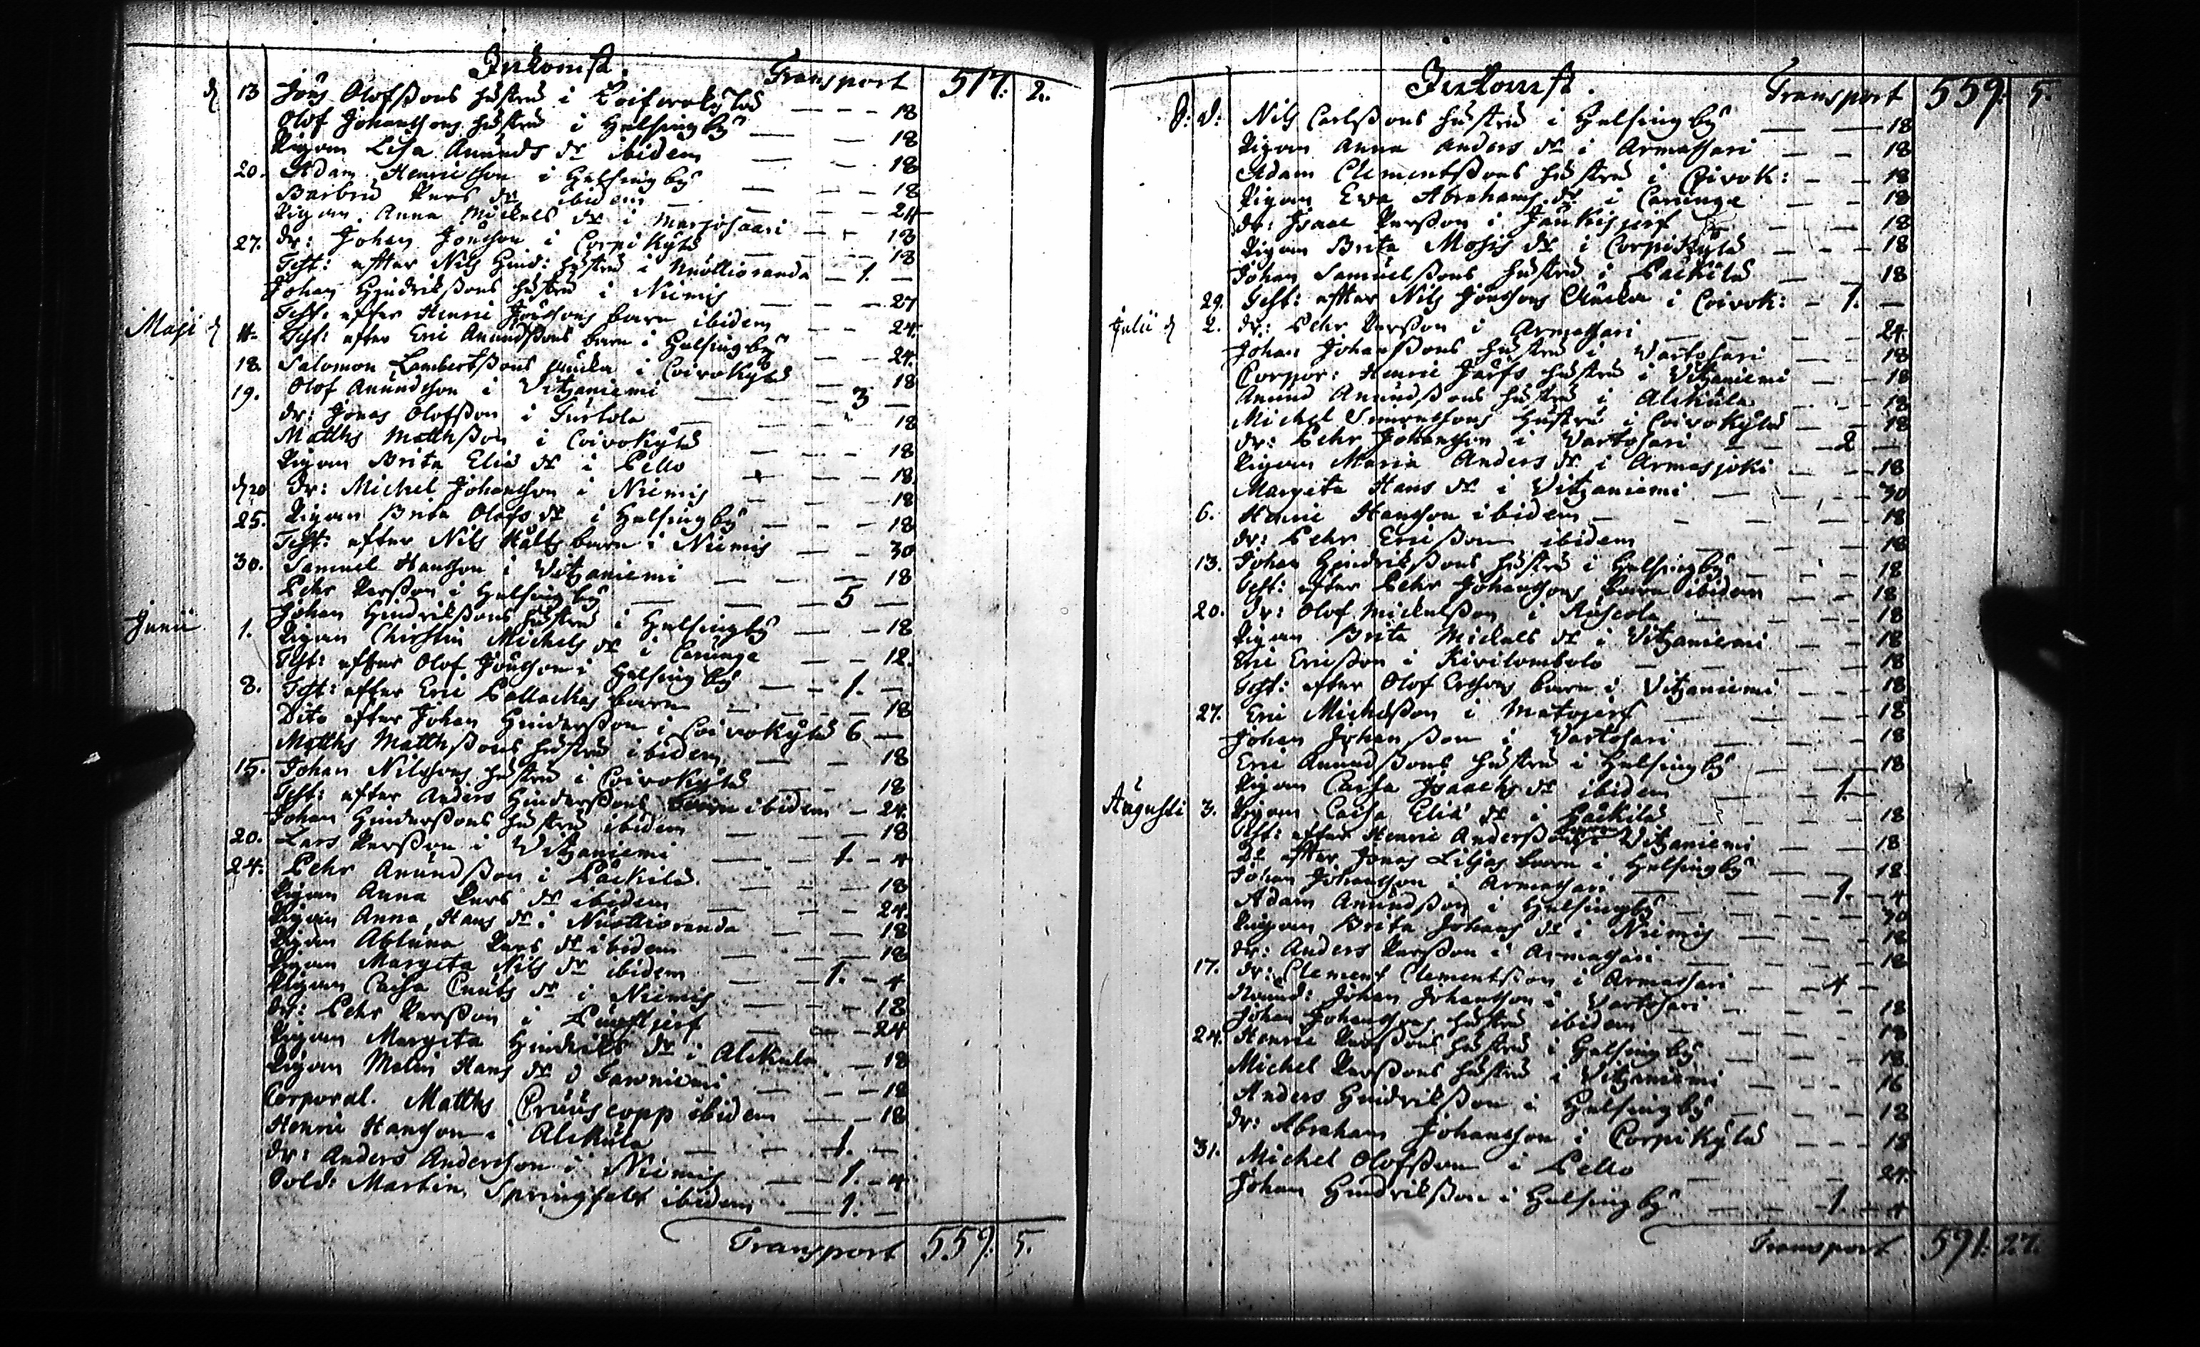 Inkomst. Transport 517: 2.
d 13 Jöns Olofßons hustru i Coifvokylä — 18
Olof Johanssons hustru i Helsingby — 18
Pigan Lisa Anunds dr ibidem — 18
20. Adam Henricsson i Helsingby — 18
Barbru Pers dr ibidem — 24
Pigan Anna Mickels dr i Marjosaari — 18
27. dr: Johan Jönsson i Corpikylä — 18
Test: efter Nils Hind: hustru i Nuottioranda — 1. —
Johan Hindrikßons hustru i Niemis — 27
Test: efter Henric Jönssons barn ibidem — 24.
Maji d 4. Test: efter Eric Anundßons barn i Helsingby — 24.
18. Salomon Lambertßons i Coivokylä — 18
19. Olof Anundsson i Vitzaniemi — 3 —
dr: Jonas Olofßon i Turtola — 18
Matths Matthßon i Coivokylä — 18
Pigan Brita Eliæ dr i Pello — 18
d 20 dr: Michel Johansson i Niemis — 18
25. Pigan Brita Olofs dr i Helsingby — 18
Test: efter Nils Hälts barn i Niemis — 30
30. Samuel Hansson i Vitzaniemi — 18
Pehr Perßon i Helsingby — 5 —
Johan Hindrikßons hustru i Helsingby — 18
Junii 1. Pigan Christin Michels dr i Carunge — 12.
Test: efter Olof Jönsson i Helsingby — 1. —
8. Test: efter Eric barn — 18
Dito efter Johan Hinderßon i Coivokylä 6 —
Matths Matthßons hustru ibidem — 18
15. Johan Nilssons hustru i Coivokylä — 18
Test: efter Anders Hinderßons barn ibidem — 24.
Johan Hinderßons hustru ibidem — 18
20. Lars Perßon i Vitzaniemi — 1. — 4
24. Pehr Anundßon i Päckilä — 18
Pigan Anna Pers dr ibidem — 24.
Pigan Anna Hans dr i Nuottioranda — 18
Pigan Abluna Pers dr ibidem — 18
Pigan Margeta Nils dr ibidem — 1. — 4
Pigan Caisa Cnuts dr i Niemis — 18
dr: Pehr Perßon i — 24
Pigan Margeta Hindriks dr i Alckula — 18
Pigan Malin Hans dr i — 18
Corporal. Matths ibidem — 18
Henric Hansson i Alckula — 1. —
dr: Anders Andersson i Niemis — 1. — 4
Sold: Marten Springfelt ibidem — 1. —
Transport 559: 5.
Inkomst. Transport 559: 5.
d: d: Nils Carlßons hustru i Helsingby — 18
Pigan Anna Anders dr i Armassari — 18
Adam Clementßons hustru i Coivok: — 18
Pigan Eva Abrahams dr i Carunge — 18
dr: Isaac Perßon i — 18
Pigan Brita Mosis dr i Corpikylä — 18
Johan Samuelßons hustru i Päckilä — 18
29. Test: efter Nils Jönssons i Coivok: — 1. —
Julii d 2. dr: Pehr Perßon i Armassari — 24
Johan Johanßons hustru i Vartosari — 18
Corpor: Henric Järfs hustru i Vitzaniemi — 18
Anund Anundßons hustru i Alckula — 18
Michel hustru i Coivokylä — 18
dr: Pehr Johansson i Vartosari — 2 —
Pigan Maria Anders dr i Armasjoki — 18
Margeta Hans dr i Vitzaniemi — 30
6. Henric Hansson ibidem — 18
dr: Pehr Ericßon ibidem — 18
13. Johan Hindrikßons hustru i Helsingby — 18
Test: efter Pehr Johanssons barn ibidem — 18
20. dr: Olof Mickelßon i — 18
Pigan Brita Mickels dr i Vitzaniemi — 18
Eric Ericßon i Kirilombolo — 18
Test: efter Olof barn i Vitzaniemi — 18
27. Eric Michelßon i Matojerf — 18
Johan Johanßon i Vartosari — 18
Eric Anundßons hustru i Helsingby — 18
Pigan Caisa Isaachs dr ibidem — 1. —
Augusti 3. Pigan Caisa Eliæ dr i Päckilä — 18
Test: efter Henric Anderßons barn Vitzaniemi — 18
Do efter Jonas Liljas barn i Helsingby — 18
Johan Johansson i Armassari — 1. — 4
Adam Anundßon i Helsingby — 30
Pigan Brita Johans dr i Niemis — 18
dr: Anders Perßon i Armassari — 18
17. dr: Clement Clementßon i Armassari — 4 —
Johan Johansson i Vartosari — 18
Johan Johanssons hustru ibidem — 18
24. Henric Perßons hustru i Helsingby — 18
Michel Perßons hustru i Vitzaniemi — 16
Anders Hindrikßon i Helsingby — 18
dr: Abraham Johansson i Corpikylä — 18
31. Michel Olofßon i Pello — 24.
Johan Hindrikßon i Helsingby — 1. — 4
Transport 591: 27.